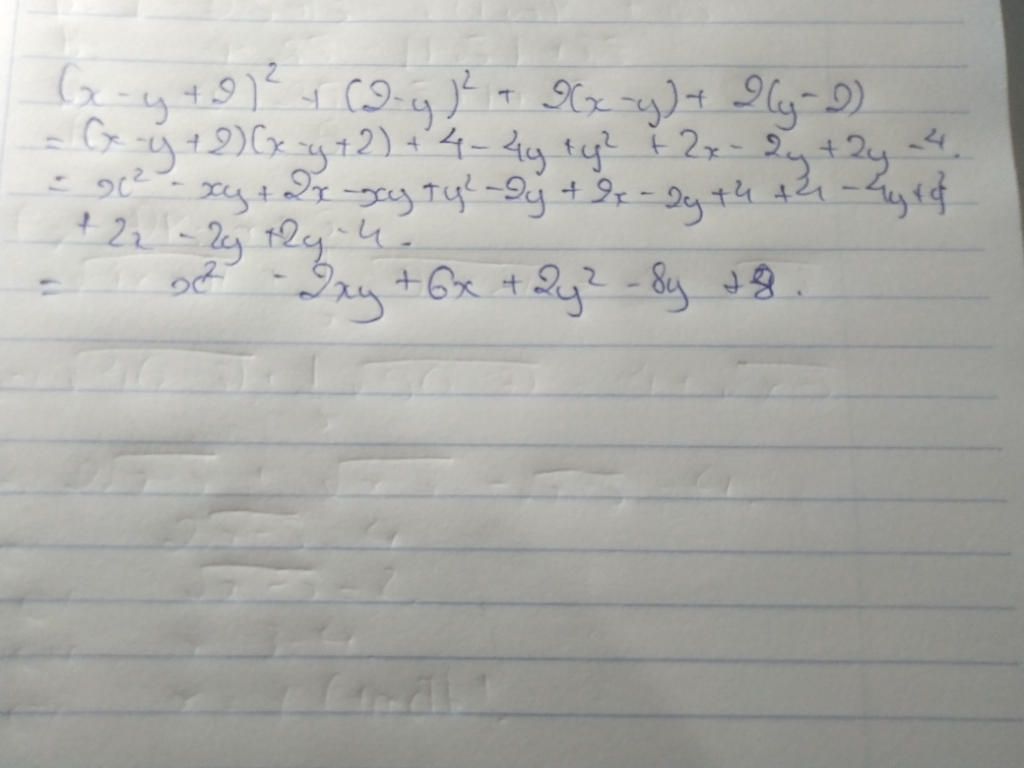 (x - y + 2)² + (2 - y)² + 2(x - y) + 2(y - 2)
= (x - y + 2)(x - y + 2) + 4 - 4y + y² + 2x - 2y + 2y - 4.
= x² - xy + 2x - xy + y² - 2y + 2x - 2y + 4 + 4 - 4y + y²
+ 2x - 2y + 2y - 4.
= x² - 2xy + 6x + 2y² - 8y +